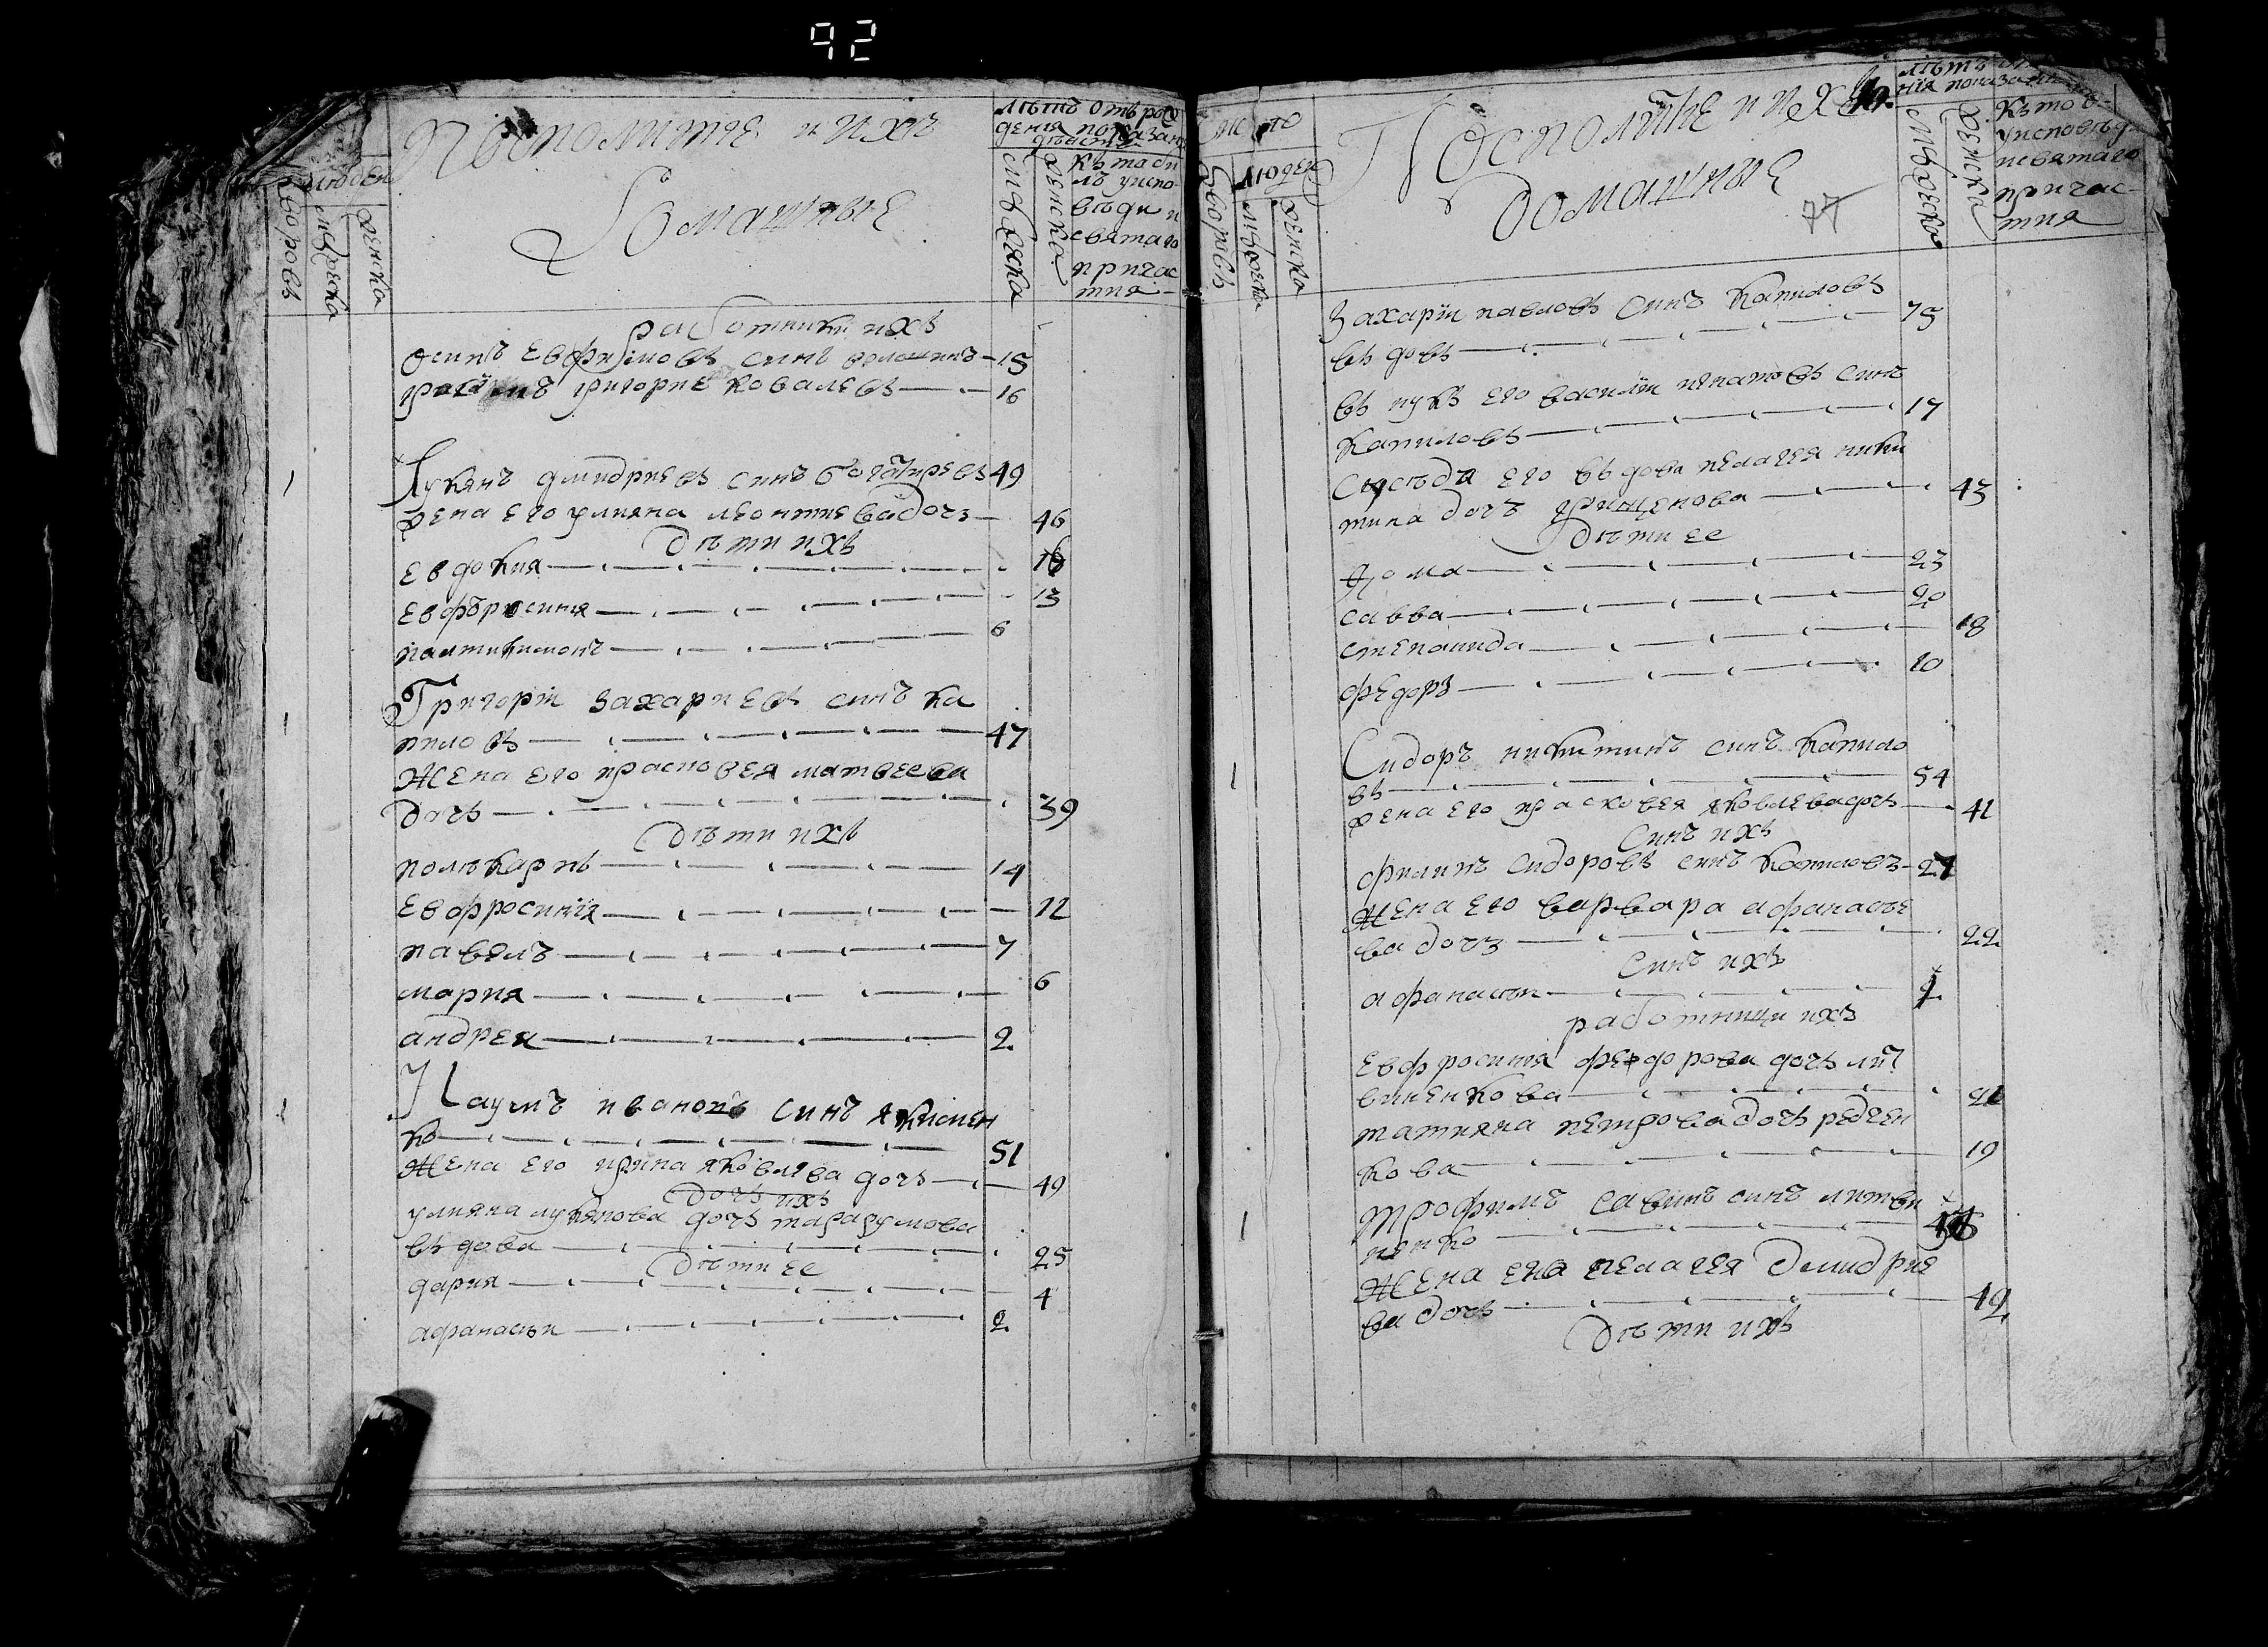 92
Посполитые и ихъ
Домашные
дворовъ
людей
мужеска
женска
лѣтъ отъ рож
дения показан
мужеска
женска
къ то бы
лъ у испо
вѣди и
святаго
причас
тия
работники ихъ
осипъ евфимовъ синъ волошинъ 15
григорие ковалевъ 16
1
Лукянъ дмидриевъ синъ богатиревъ 49
жена его улияна леонтиева дочъ 46
дѣти ихъ
евдокия
евфросиния 13
пантилимонъ 6
1
Григорій захариевъ синъ ка
пиловъ 47
Жена его прасковея матвеева
дочъ 39
дѣти ихъ
поликарпъ 14
евфросинїя 12
павелъ 7
мария 6
андрей 2
1
Наумъ ивановъ синъ якименк
ко 51
Жена его ирина яковлева дочъ 49
дочъ ихъ
улияна лукянова дочъ тарарумова
въдова 25
дѣти ее
дария 4
афанасъи 2
число
дворовъ
людей
мужеска
женска
Посполитые и ихъ
домашные
77
лѣтъ
ния показани
мужеска
женска
къ то б
у исповѣди
и святаго
причас
тия
Захарїи павловъ синъ Капиловъ
въдовъ 75
въ нукъ его василїи игнатовъ синъ
Капиловъ 17
сусѣда его въдова пелагея ники
тина дочъ грищенкова 43
дѣти ее
Фома 23
савва 20
степанида 18
федоръ 10
1
Сидоръ никитинъ синъ Капило
въ 54
жена его прасковея яковлева дочъ 41
Синъ ихъ
филипъ сидоровъ синъ Капиловъ 27
Жена его варвара афанасъе
ва дочъ 22
Синъ ихъ
афанасъи 1
работници ихъ
евфросиния федорова дочъ лит
виненкова 21
татияна петрова дочъ редчен
кова 19
1
трофимъ савинъ синъ литви
ненко
Жена его пелагея дмидрие
ва дочъ 42
дѣти ихъ